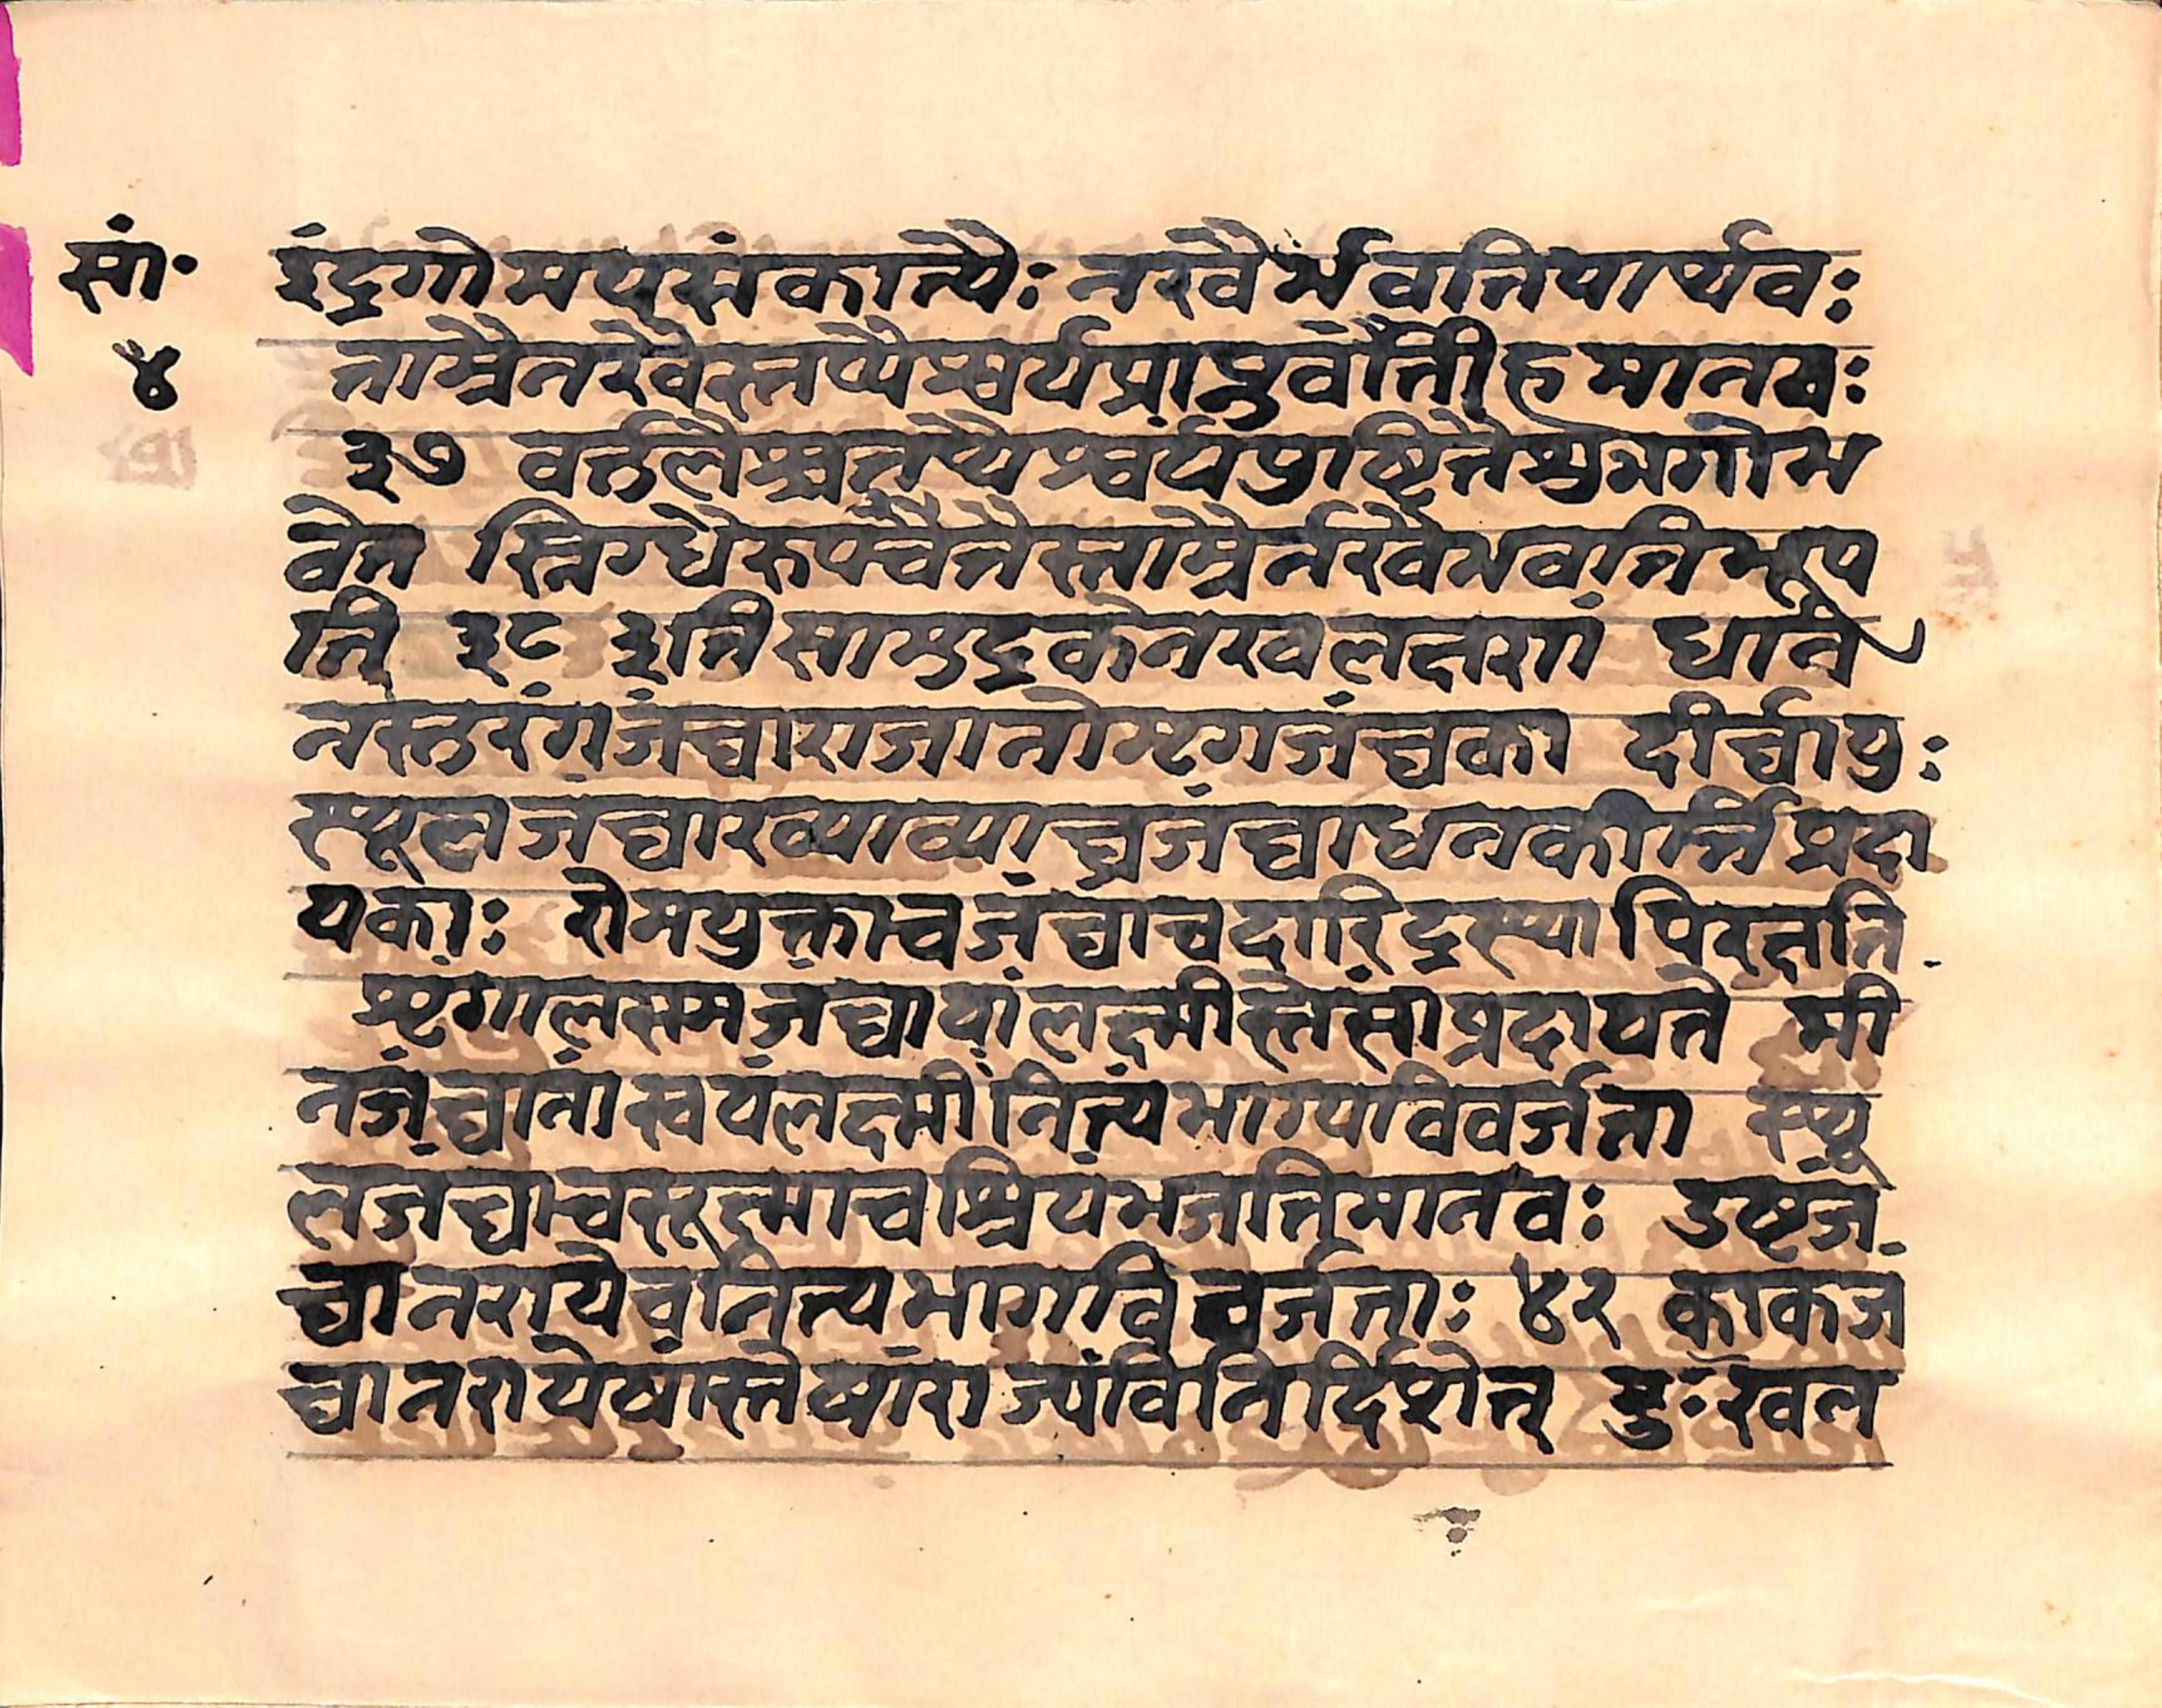 सां॰
४
इंद्रगोमयसंकात्यैः नखैर्भवन्तिपार्थवः
ताम्रैनखेवेस्तथैश्वर्यप्राप्नुवंतीहमानवः
३७ वर्त्तलैश्चतथैश्वर्यपाष्टितेशुभगोभ
वेत स्निग्धेरुपचैतेस्ताम्रैर्नखैभवन्तिभूप
ति ३८ इतिसामुद्रकेनखलक्षणं धनि
नस्तरंगजंघाराजानोमृगजंघका दीर्घायुः
स्थूलजंघाख्याव्याघ्रजंघाधनकीर्त्तिप्रदा
यकाः रोमयुक्ताचजंघाचदारिद्रस्यापिरक्षति
शृगालसमजंघायांलक्ष्मीस्तेसांप्रदायते मी
नजंघानांस्वयंलक्ष्मींनित्यंभाग्यविवर्जता स्थू
लजंघाचसूक्ष्माचश्रियंभजन्तिमानवः उष्ट्रजं
घानरायेचनित्यभागविवर्जताः ४१ काकजं
घानरायेषांस्तेषांराज्यंविनिर्दिशेत् मुःखल